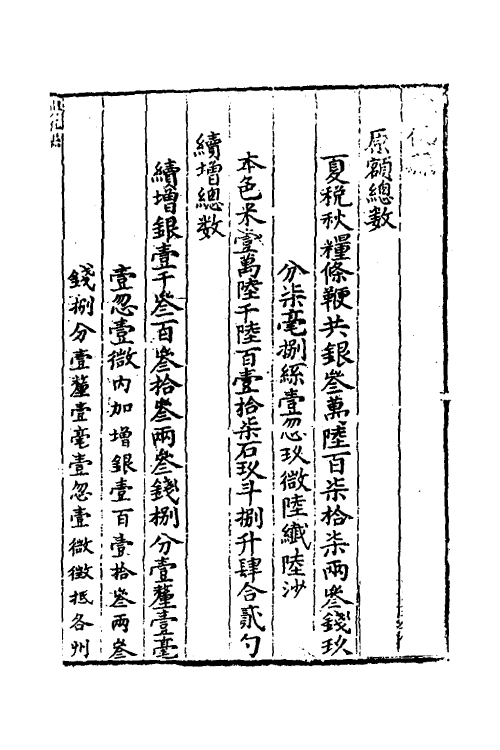 原額總數
夏稅秋糧條鞭共銀叄萬陸百柒拾柒兩叄錢玖
分柒毫捌絲壹忽玖微陸纖陸沙
本色米壹萬陸千陸百壹拾柒石玖斗捌升肆合貳勺
續增總數
續增銀壹千叄百叄拾叄兩叄錢捌分壹釐壹毫
壹忽壹微內加增銀壹百壹拾叄兩叄
錢捌分壹釐壹毫壹忽壹微徵抵各州